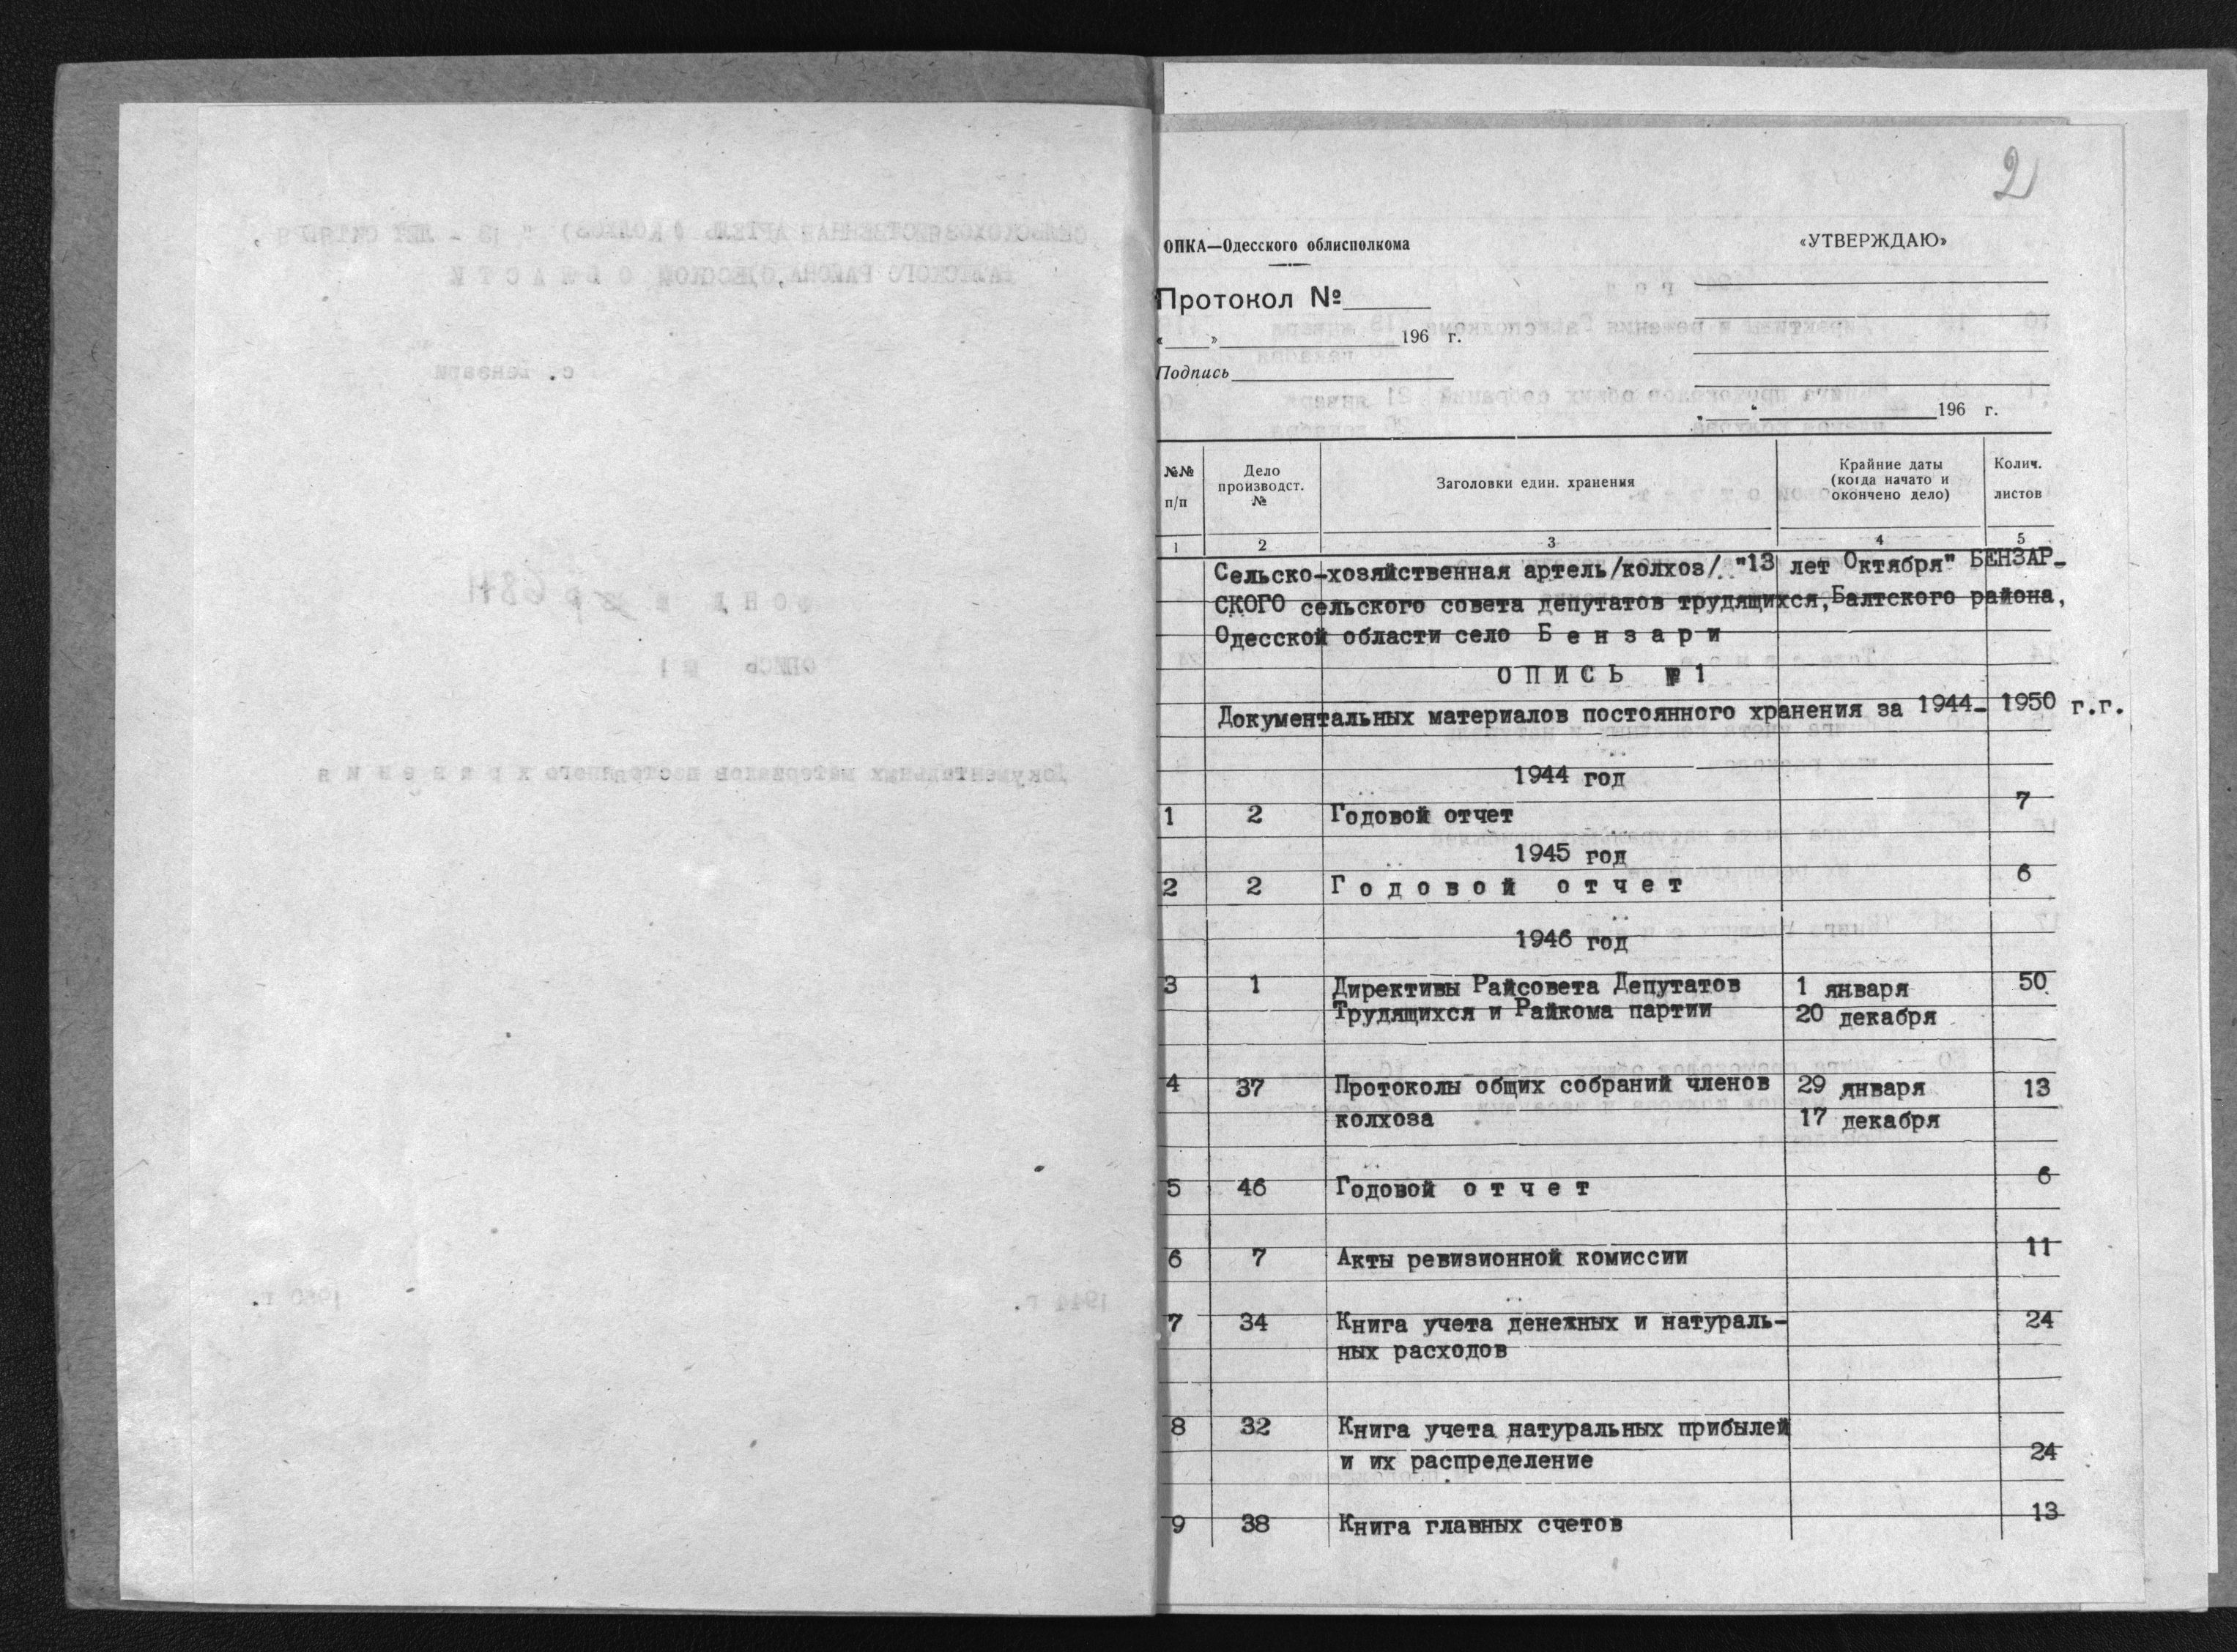 2
ОПКА—Одесского облисполкома
«УТВЕРЖДАЮ»
Протокол №
« » 196 г.
Подпись
„ “ 196 г.
№№ п/п
Дело производст. №
Заголовки един. хранения
Крайние даты (когда начато и окончено дело)
Колич. листов
1 2 3 4 5
Сельско-хозяйственная артель/колхоз/ "13 лет Октября" БЕНЗАР-
СКОГО сельского совета депутатов трудящихся, Балтского района,
Одесской области село Б е н з а р и
О П И С Ь № 1
Документальных материалов постоянного хранения за 1944- 1950 г.г.
1944 год
1 2 Годовой отчет 7
1945 год
2 2 Г о д о в о й о т ч е т 6
1946 год
3 1 Директивы Райсовета Депутатов 1 января 50
Трудящихся и Райкома партии 20 декабря
4 37 Протоколы общих собраний членов 29 января 13
колхоза 17 декабря
5 46 Годовой о т ч е т 6
6 7 Акты ревизионной комиссии 11
7 34 Книга учета денежных и натураль- 24
ных расходов
8 32 Книга учета натуральных прибылей
и их распределение 24
9 38 Книга главных счетов 13